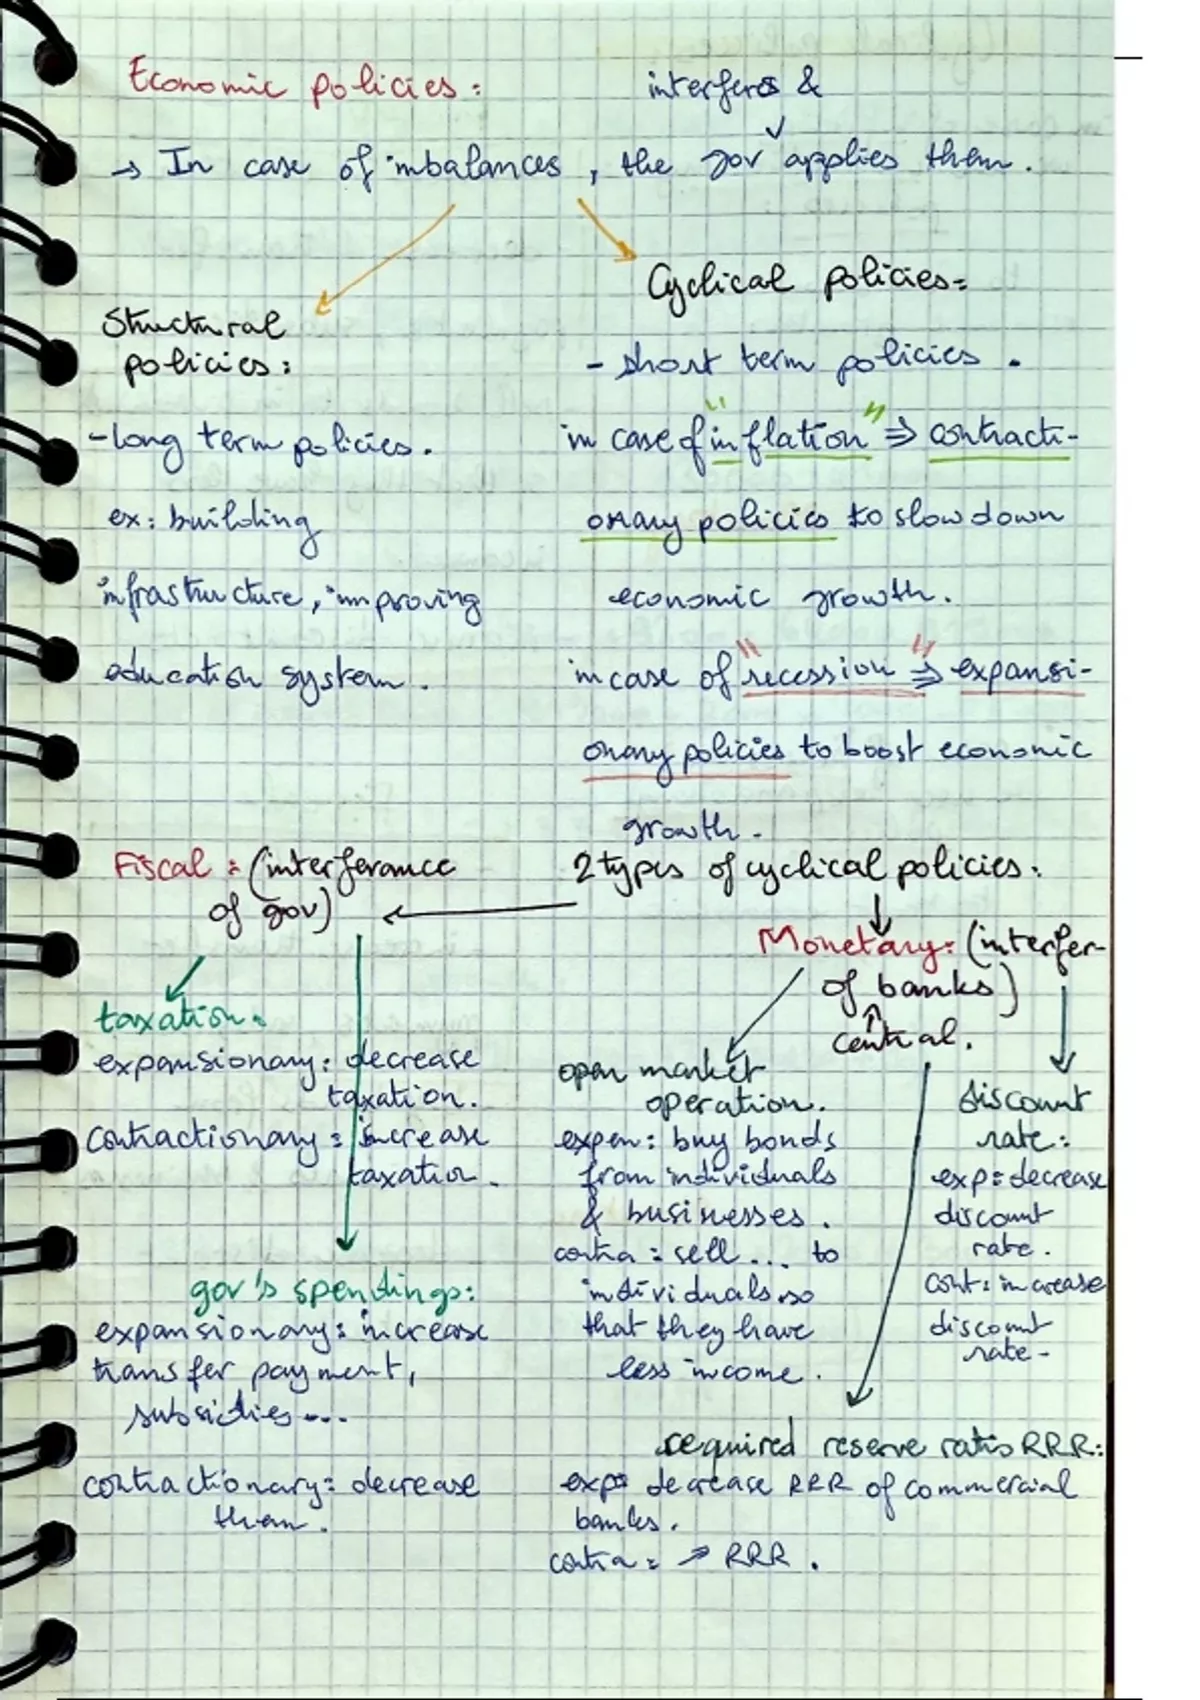 Economic policies :
interferes &
→ In case of imbalances , the gov applies them .
Structural
policies :
- long term policies .
ex : building
infrastructure , improving
education system .
Cyclical policies =
- short term policies .
in case of "inflation" ⇒ contracti-
onary policies to slow down
economic growth .
in case of "recession" ⇒ expansi-
onary policies to boost economic
growth .
2 types of cyclical policies :
Fiscal : (interferance
of gov)
taxation :
expansionary : decrease
taxation .
contractionary : increase
taxation .
gov's spendings :
expansionary : increase
transfer payment ,
subsidies ...
contractionary : decrease
them .
Monetary : (interfer-
of banks)
central .
open market
operation .
expan : buy bonds
from individuals
& businesses .
contra : sell ... to
individuals so
that they have
less income .
discount
rate :
exp : decrease
discount
rate .
cont : increase
discount
rate -
required reserve ratio RRR :
exp : decrease RRR of commercial
banks .
contra : ↗ RRR .